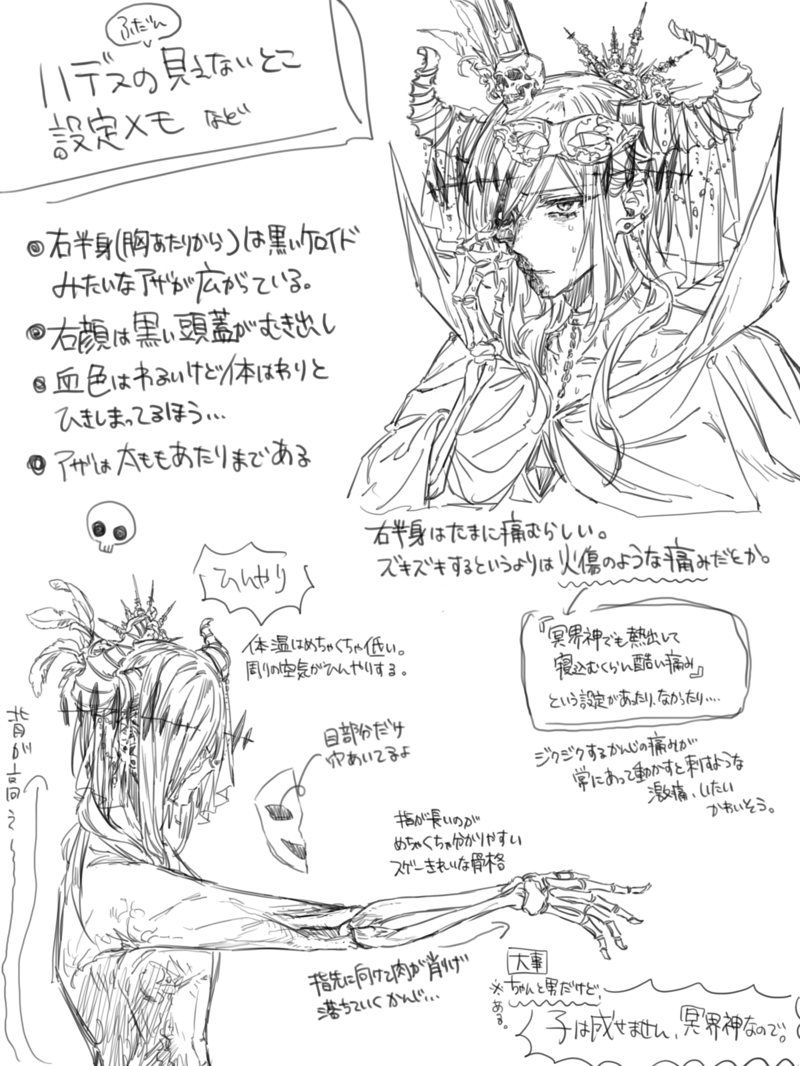 ふだん
ハデスの見えないとこ
設定メモ など
右半身(胸あたりから)は黒いケロイド
みたいなアザが広がっている。
右顔は黒い頭蓋がむき出し
血色はわるいけど体はわりと
ひきしまってるほう…
アザは太ももあたりまである
右半身はたまに痛むらしい。
ズキズキするというよりは火傷のような痛みだとか。
ひんやり
体温はめちゃくちゃ低い。
周りの空気がひんやりする。
『冥界神でも熱出して
寝込むくらい酷い痛み』
という設定があったり、なかったり….
ジクジクするかんじの痛みが
常にあって動かすと刺すような
激痛、いたい
かわいそう。
背が高い
目部分だけ
穴あいてるよ
指が長いのが
めちゃくちゃ分かりやすい
スゲーきれいな骨格
指先に向けて肉が削げ
落ちていくかんじ…
大事
※ちゃんと男だけど、
ある。
子は成せません、冥界神なので。